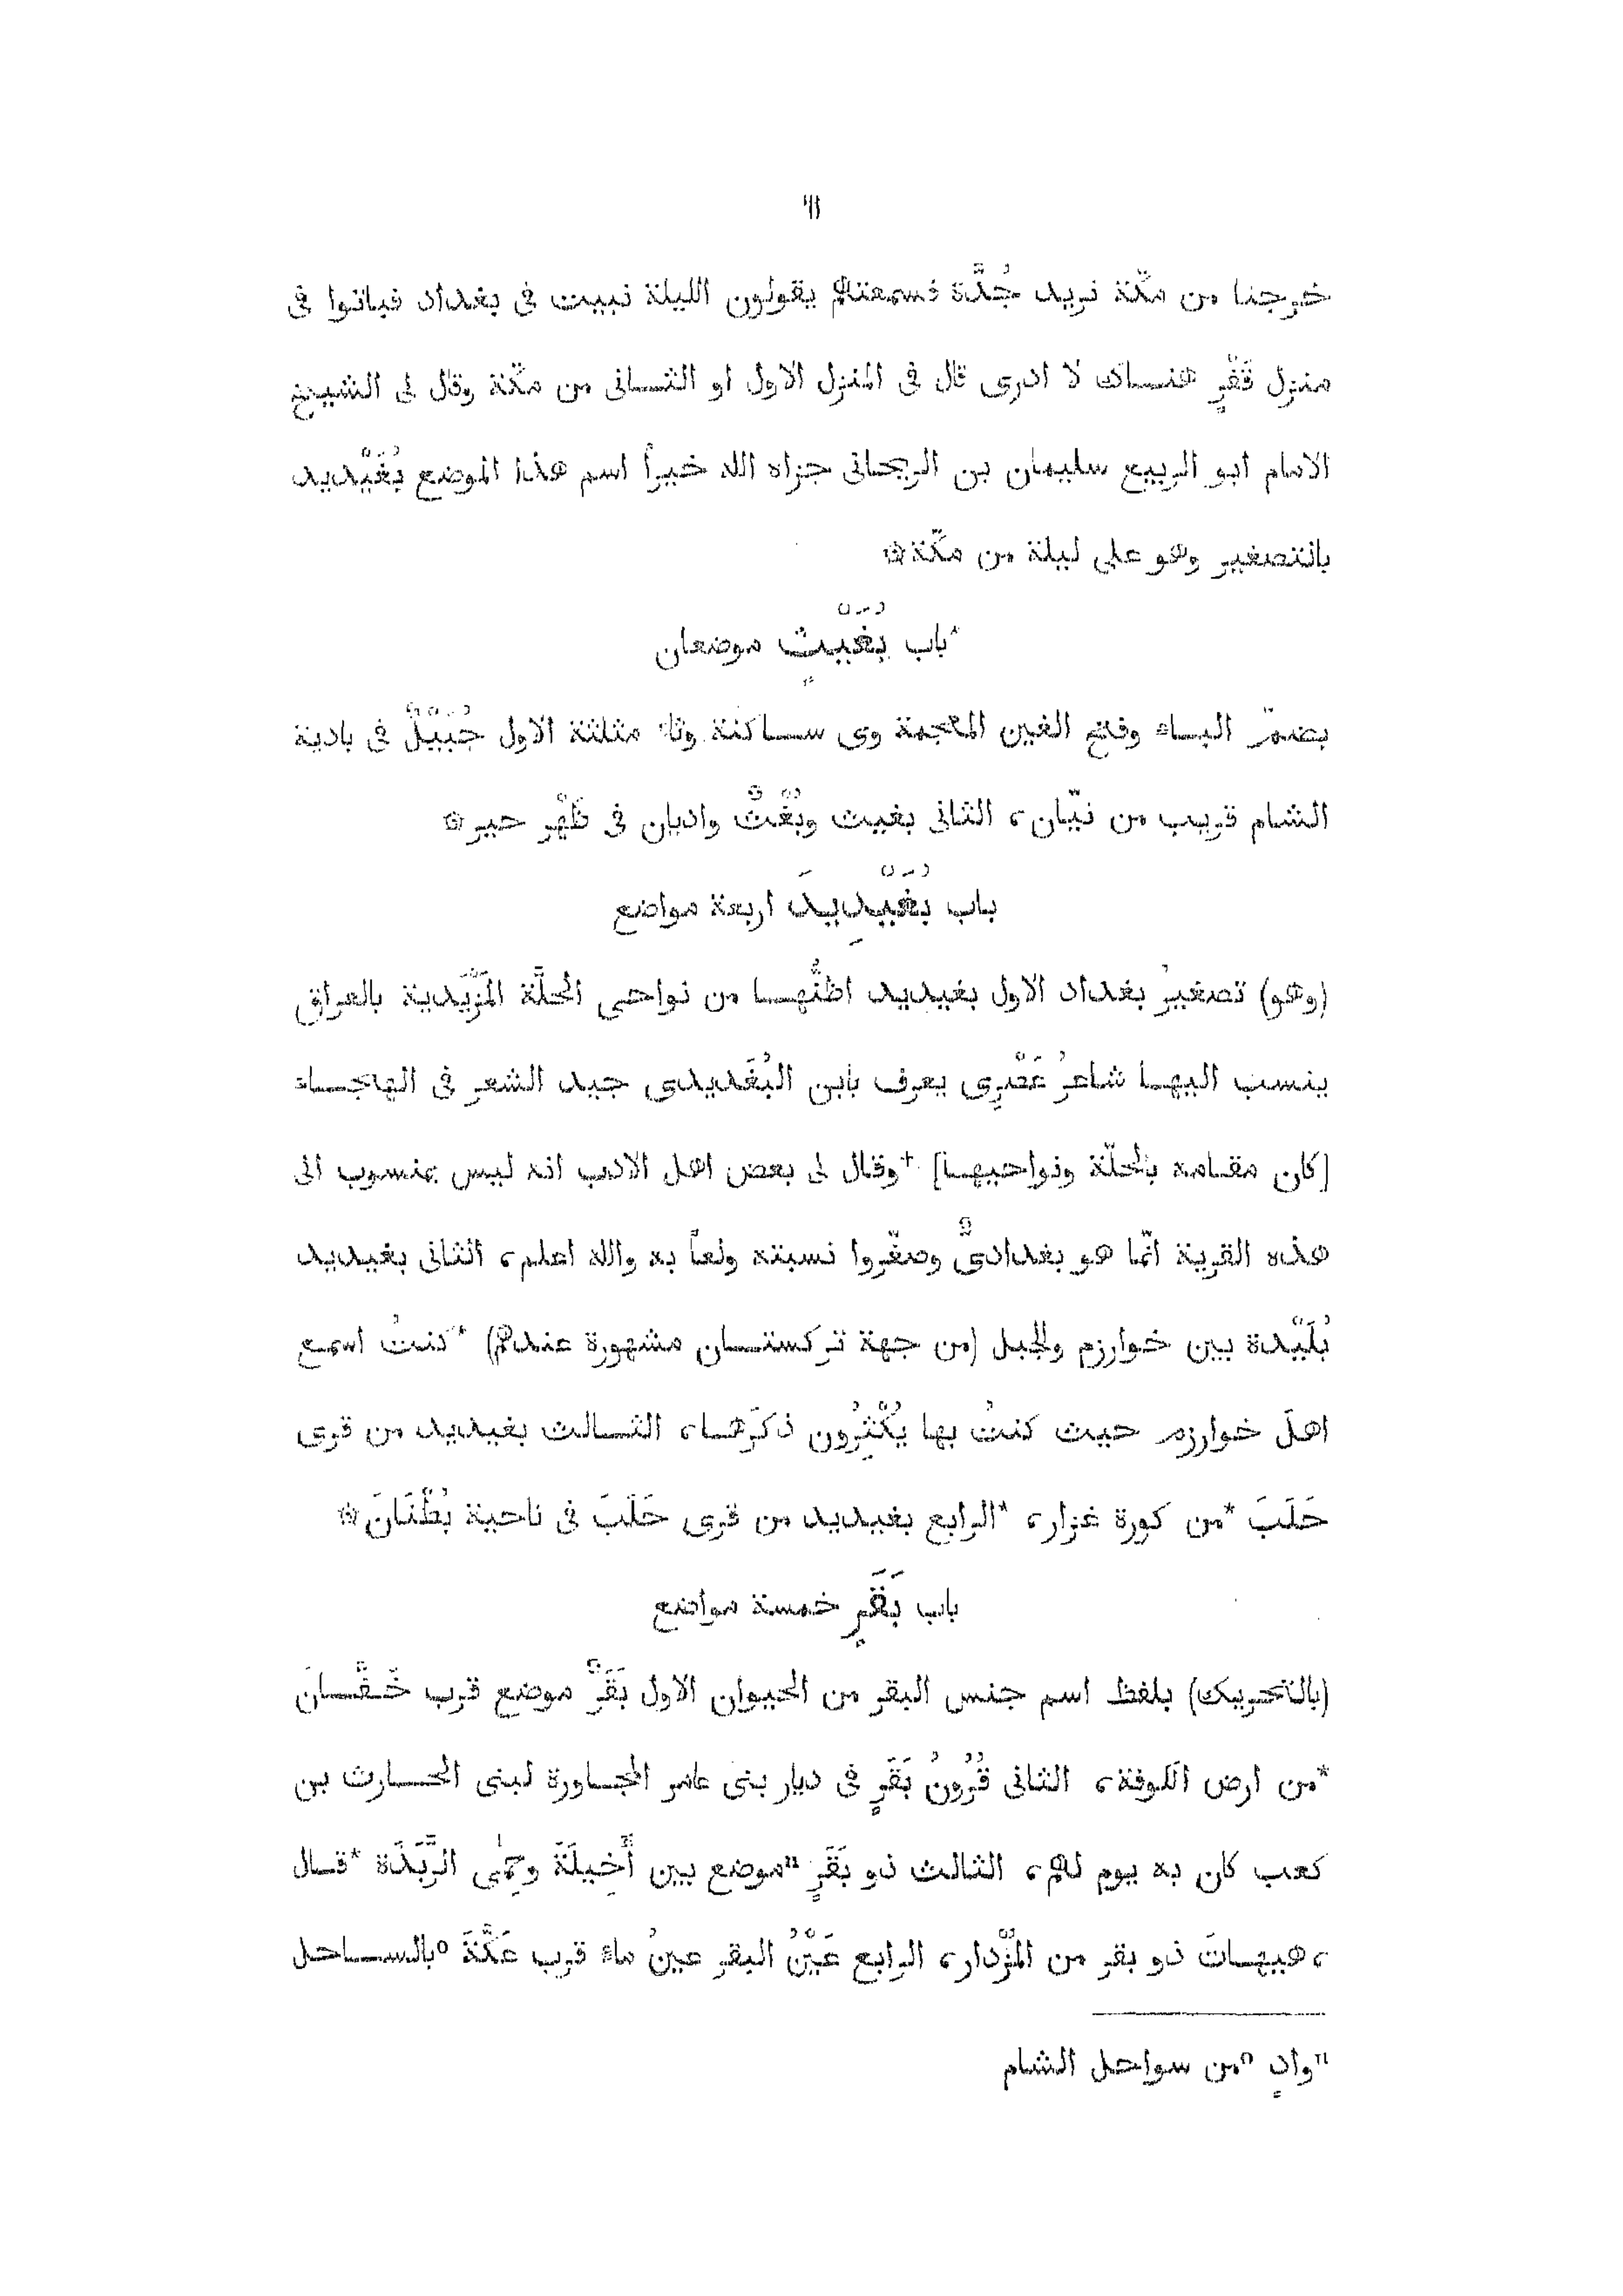 ٦١
خرجنا من مكّة نريد جُدَّة فسمعتهم يقولون الليلة نبيت فى بغداد فباتوا فى
منزل قَفْرٍ هناك لا ادرى قال فى المنزل الاول او الثانى من مكّة وقال لى الشيخ
الامام ابو الربيع سليمان بن الريحانى جزاه الله خيراً اسم هذا الموضع بُغَيْديد
بالتصغير وهو على ليلة من مكّة۞
*باب بُغَيْثٍ موضعان
بضمّ الباء وفتح الغين المعجمة وى ساكنة وثاء مثلثة الاول جُبَيْلٌ فى بادية
الشام قريب من نيّان، الثانى بغيث وبُغْثٌ واديان فى ظَهْر خيبر۞
باب بُغَيْدِيدَ اربعة مواضع
(وهو) تصغيرُ بغداد الاول بغيديد اظنُّها من نواحى الحلَّة المَزْيَدية بالعراق
ينسب اليها شاعرُ عَصْرِى يعرف بابن البُغَديدى جيد الشعر فى الهاجاء
[كان مقامه بالحلّة ونواحيها] †وقال لى بعض اهل الادب انه ليس بمنسوب الى
هذه القرية انّما هو بغدادىٌّ وصغّروا نسبته ولعاً به والله اعلم، الثانى بغيديد
بُلَيْدة بين خوارزم والجبل (من جهة تركستان مشهورة عندهم) *كنتُ اسمع
اهلَ خوارزم حيث كنتُ بها يُكْثِرُون ذكرَها، الثالث بغيديد من قرى
حَلَبَ *من كورة عزاز، *الرابع بغيديد من قرى حَلَبَ فى ناحية بُطْنَانَ۞
باب بَقَرٍ خمسة مواضع
(بالتحريك) بلفظ اسم جنس البقر من الحيوان الاول بَقَرٌ موضع قرب خَفَّانَ
*من ارض الكوفة، الثانى قُرُونُ بَقَرٍ فى ديار بنى عامر المجاورة لبنى الحارث بن
كعب كان به يوم لهم، الثالث ذو بَقَرٍ ⁿموضع بين أَخِيلَةَ وحِمَى الرَّبَذَة *قال
، هيهاتَ ذو بقر من المُزْدار، الرابع عَيْنُ البقر عينُ ماء قرب عَكَّةَ ᵒبالساحل
ⁿوادٍ ᵒمن سواحل الشام